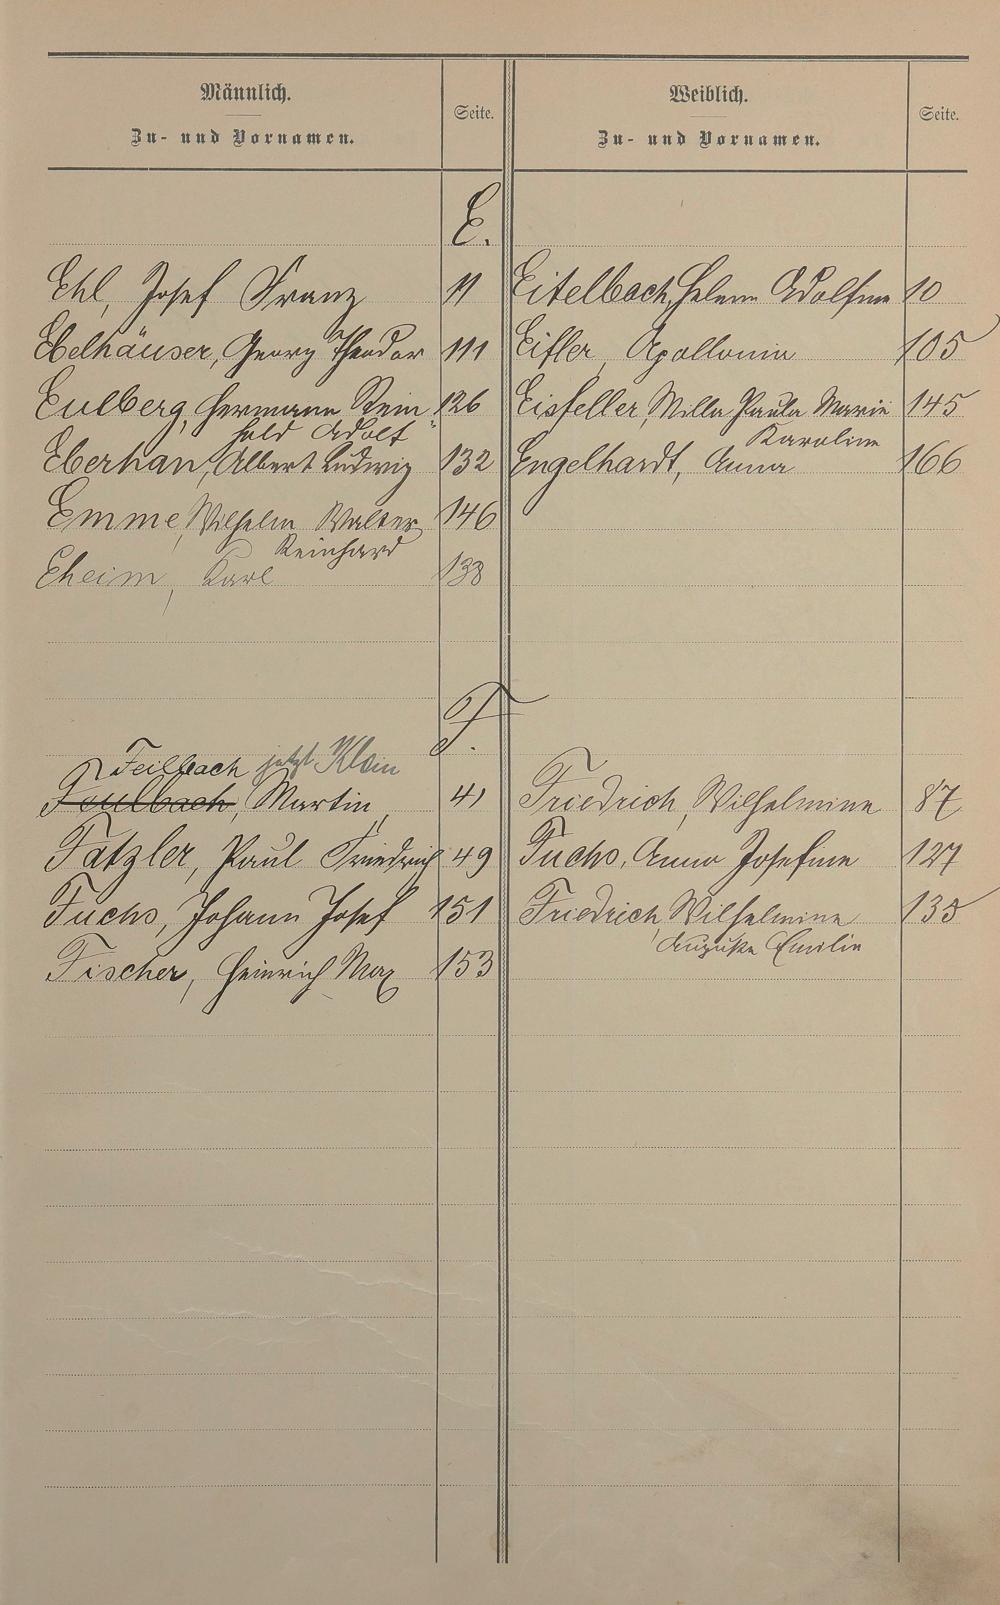 Männlich.
Zu- und Vornamen.
Seite.
Weiblich.
Zu- und Vornamen.
Seite.
E.
Ehl, Josef Franz 11
Ebelhäuser, Georg Theodor 111
Eulberg, Hermann Rein 126
hold Adolf
Eberhan, Albert Ludwig 132
Emme, Wilhelm Walter 146
Reinhard
Eheim, Karl 133
Eitelbach, Helene Adolfine 10
Eifler, Apollonia 105
Eisfeller, Milla Paula Marie 145
Karoline
Engelhardt, Anna 166
F.
Feilbach jetzt Klein
Feulbach, Martin 41
Fatzler, Paul Friedrich 49
Fuchs, Johann Josef 151
Fischer, Heinrich Max 153
Friedrich, Wilhelmine 87
Fuchs, Anna Josefine 127
Friedrich, Wilhelmine 135
Auguste Emilie